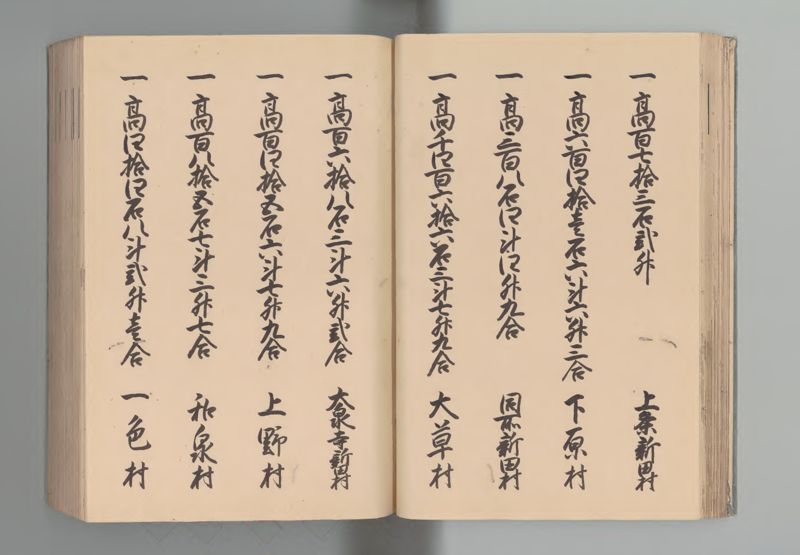 一 高百七拾三石弐升 上条新田村
一 高六百四拾壱石六斗六升三合 下原村
一 高三百八石四斗四升九合 同所新田村
一 高千四百六拾六石三斗七升九合 大草村
一 高百六拾八石三斗六升弐合 大泉寺新田村
一 高百四拾五石六斗七升九合 上野村
一 高百八拾五石七斗三升七合 和泉村
一 高四拾四石八斗弐升壱合 一色村